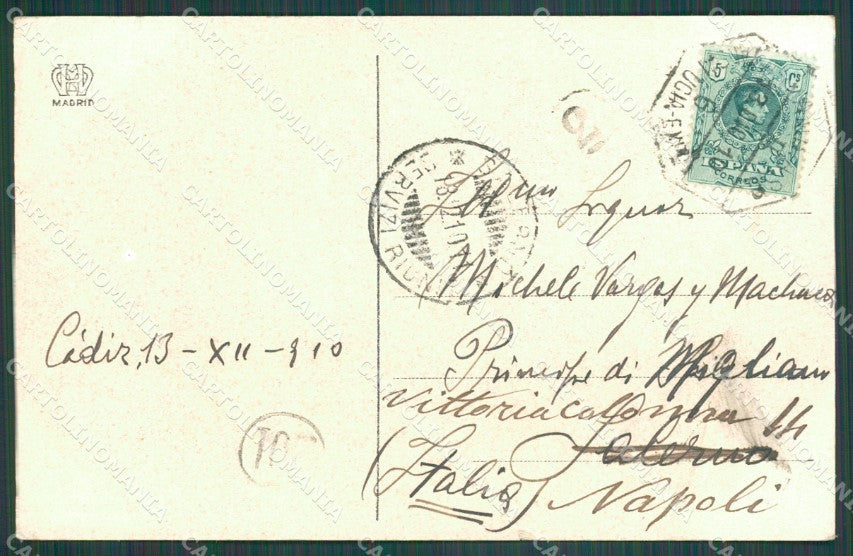 MADRID
5 Cs
CORREOS
SERVIZI RIUN
Signor
Michele Vargas y Machuca
Principe di Migliano
Vittoria Colonna 14
Salerno
(Italia) Napoli
Cádiz, 13 - XII - 910
10
CARTOLINOMANIA